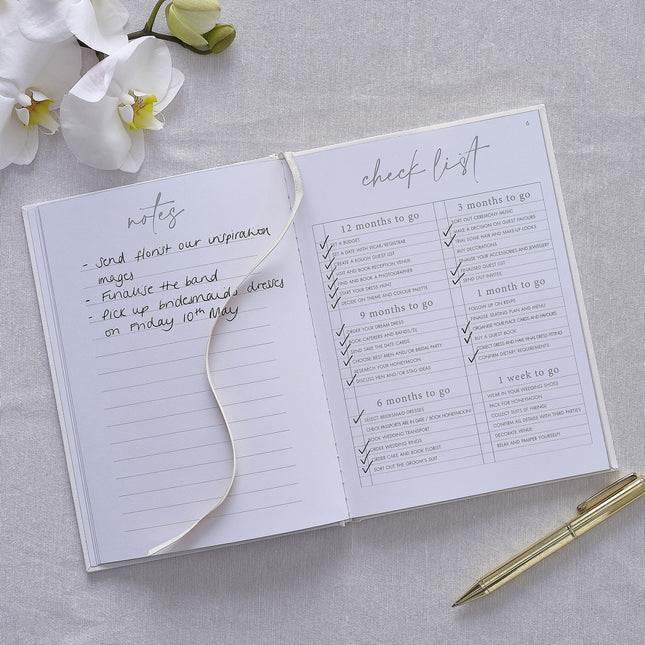 notes
- send florist our inspiration
images
- Finalise the band
- Pick up bridesmaids dresses
on Friday 10th May
6
check list
12 months to go
SET A BUDGET
SET A DATE WITH VICAR/REGISTRAR
CREATE A ROUGH GUEST LIST
VISIT AND BOOK RECEPTION VENUE
FIND AND BOOK A PHOTOGRAPHER
START YOUR DRESS HUNT
DECIDE ON THEME AND COLOUR PALETTE
9 months to go
ORDER YOUR DREAM DRESS
BOOK CATERERS AND BAND/DJ
SEND SAVE THE DATE CARDS
CHOOSE BEST MEN AND/OR BRIDAL PARTY
RESEARCH YOUR HONEYMOON
DISCUSS HEN AND/OR STAG IDEAS
6 months to go
SELECT BRIDESMAID DRESSES
CHECK PASSPORTS ARE IN DATE / BOOK HONEYMOON
BOOK WEDDING TRANSPORT
ORDER WEDDING RINGS
ORDER CAKE AND BOOK FLORIST
SORT OUT THE GROOM'S SUIT
3 months to go
SORT OUT CEREMONY MUSIC
MAKE A DECISION ON GUEST FAVOURS
TRIAL SOME HAIR AND MAKE-UP LOOKS
BUY DECORATIONS
FINALISE YOUR ACCESSORIES AND JEWELLERY
FINALISED GUEST LIST
SEND OUT INVITES
1 month to go
FOLLOW UP ON RSVPS
FINALISE SEATING PLAN AND MENU
ORGANISE YOUR PLACE CARDS AND FAVOURS
BUY A GUEST BOOK
COLLECT DRESS AND HAVE FINAL DRESS FITTING
CONFIRM DIETARY REQUIREMENTS
1 week to go
WEAR IN YOUR WEDDING SHOES
PACK FOR HONEYMOON
COLLECT SUITS (IF HIRING)
CONFIRM ALL DETAILS WITH THIRD PARTIES
DECORATE VENUE
RELAX AND PAMPER YOURSELF!